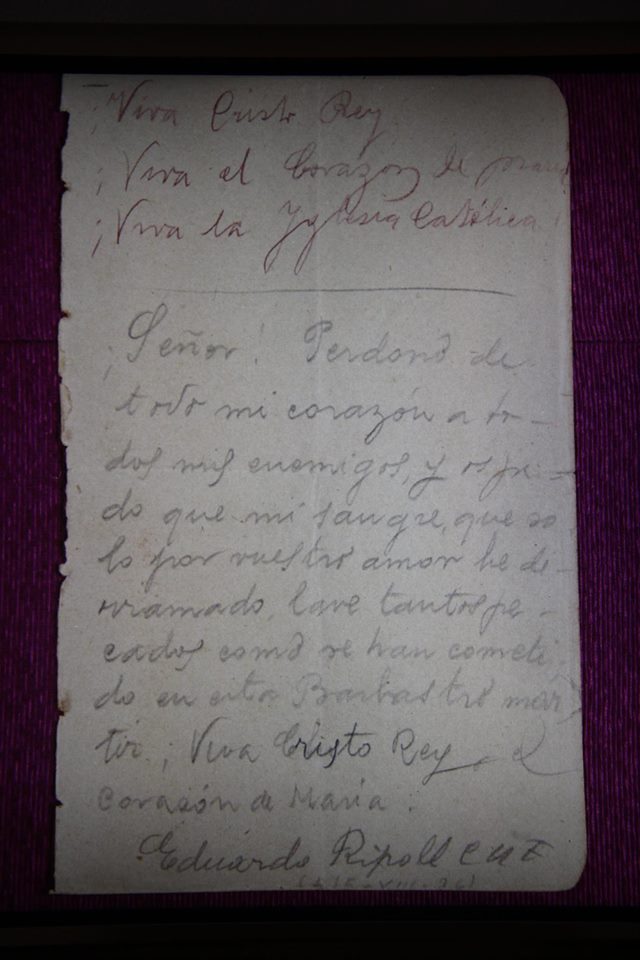 ¡Viva Cristo Rey
¡Viva el Corazón de
¡Viva la Yglesia Católica!
¡Señor! Perdono de
todo mi corazón a to-
dos mis enemigos, y os pi-
do que mi sangre, que so
lo por vuestro amor he de-
rramado, lave tantos pe-
cados como se han cometi
do en esta Barbastro már
tir. ¡Viva Cristo Rey, el
Corazón de María.
Eduardo Ripoll CMF